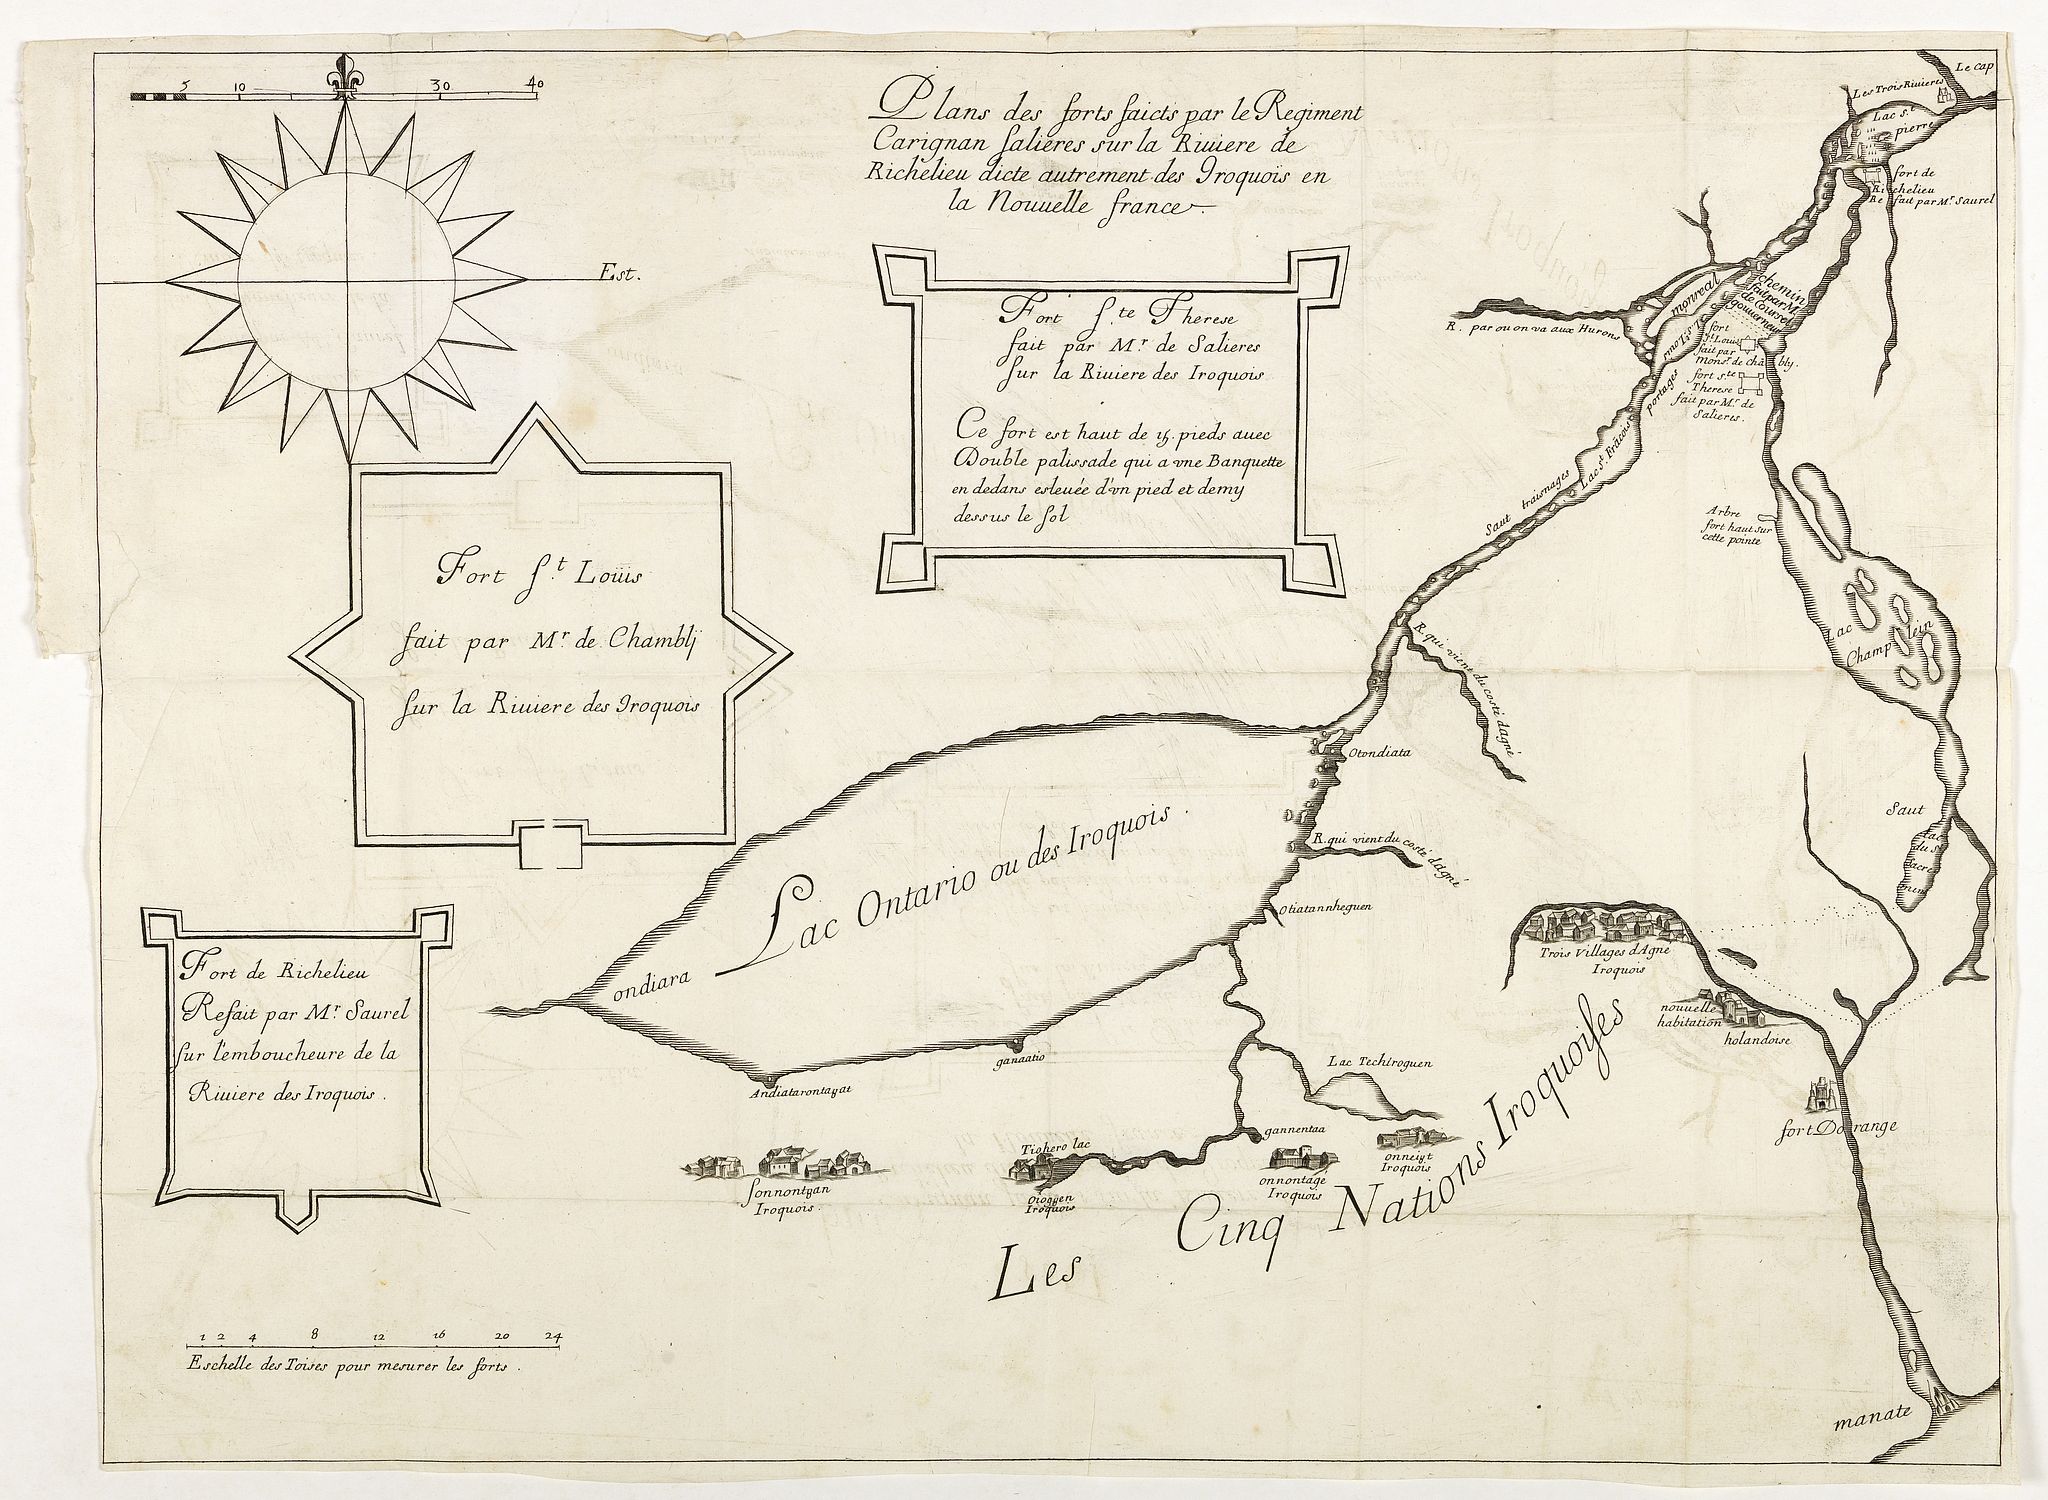 5 10 30 40
Est.
Plans des forts faicts par le Regiment
Carignan Salieres sur la Riuiere de
Richelieu dicte autrement des Iroquois en
la Nouuelle france
Fort S.te Therese
fait par Mr. de Salieres
sur la Riuiere des Iroquois
Ce fort est haut de 15. pieds auec
Double palissade qui a vne Banquette
en dedans esleuée d'vn pied et demy
dessus le sol
Fort S.t Loüis
fait par Mr. de Chamblij
sur la Riuiere des Iroquois
Fort de Richelieu
Refait par Mr. Saurel
sur l'emboucheure de la
Riuiere des Iroquois.
1 2 4 8 12 16 20 24
Eschelle des Toises pour mesurer les forts.
Le cap
Les Trois Riuieres
Lac S.t
pierre
fort de
Richelieu
Refait par Mr. Saurel
R. par ou on va aux Hurons
monreal
Chemin
fait par M.
de Courselle
gouuerneur
fort
S.t Louis
fait par
monsr. de chãbly.
fort S.te
Therese
fait par Mr. de
Salieres.
portages
Lac S.t Frãcois
Saut traisnages
Arbre
fort haut sur
cette pointe
Lac
Champlein
R. qui vient du costé dagné
Otondiata
Saut
Lac
du S.
Sacre
ment
R. qui vient du costé dagné
Otiatannheguen
Lac Ontario ou des Iroquois.
ondiara
Trois Villages dAgné
Iroquois
nouuelle
habitation
holandoise
ganaatio
Andiatarontayat
Lac Techiroguen
fort Dorange
gannentaa
Tiohero lac
onneiyt
Iroquois
onnontagé
Iroquois
Sonnontyan
Iroquois.
Oiogyen
Iroquois
Les Cinq Nations Iroquoises
manate